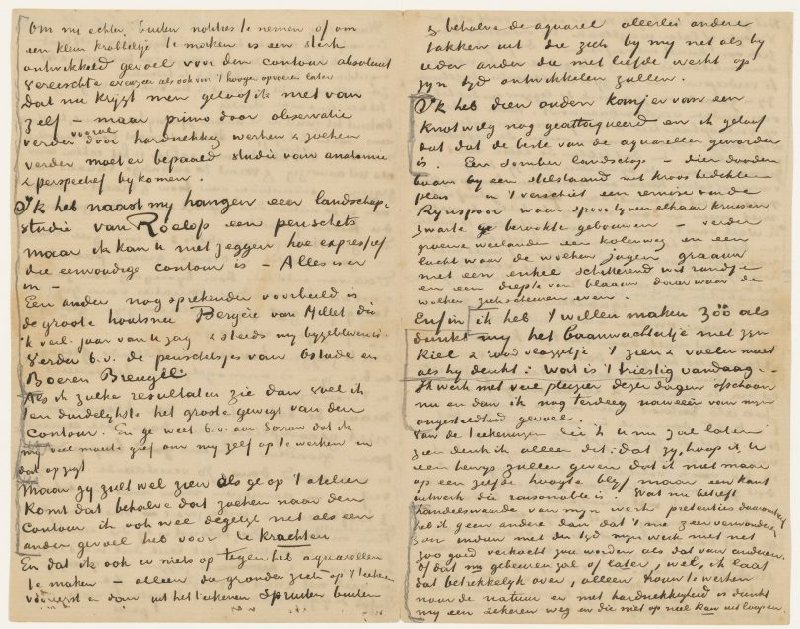 Om nu echter, buiten notities te nemen of om
een klein krabbeltje te maken is een sterk
ontwikkeld gevoel voor den contour absoluut
vereischte evenzeer als ook voor 't hooger opvoeren later
Dat nu krijgt men geloof ik niet van
zelf – maar primo door observatie
verder vooral door hardnekkig werken & zoeken
verder moet er bepaald studie van anatomie
& perspectief bijkomen.
Ik heb naast mij hangen een landschap-
studie van Roelofs een penschets
maar ik kan U niet zeggen hoe expressief
die eenvoudige contour is – Alles is er
in –
Een ander nog sprekender voorbeeld is
de groote houtsnee Bergère van Millet die
'k verl. jaar van U zag & steeds mij bijgebleven is.
Verder b.v. de penschetsjes van Ostade en
Boeren Breughel.
Als ik zulke resultaten zie dan voel ik
ten duidelijkste het groote gewigt van den
contour. En ge weet b.v. aan Sorrow dat ik
mij veel moeite geef om mij zelf op te werken in
dat opzigt
Maar gij zult wel zien als ge op 't atelier
komt dat behalve dat zoeken naar den
contour ik ook wel degelijk net als een
ander gevoel heb voor de krachten
En dat ik ook er niets op tegen heb aquarellen
te maken – alleen de grondes zich op 't teekenen
voorop & dan uit het teekenen spruiten buiten
& behalve de aquarel allerlei andere
takken uit die zich bij mij net als bij
ieder ander die met liefde werkt op
zijn tijd ontwikkelen zullen.
Ik heb dien ouden kanjer van een
knotwilg nog geattaqueerd en ik geloof
dat dat de beste van de aquarellen geworden
is. Een somber landschap – dien dooden
boom bij een stilstaand met kroos bedekten
plas in 't verschiet een remise van de
Rijnspoor waar spoorlijnen elkaar kruisen
zwarte ge berookte gebouwen – verder
groene weilanden een kolenweg en een
lucht waar de wolken jagen graauw
met een enkel schitterend wit randje
en een diepte van blaauw daar waar de
wolken zich scheuren even.
Enfin ik heb 't willen maken zoo als
dunkt mij het baanwachtertje met zijn
kiel & rood vlaggetje 't zien & voelen moet
als hij denkt: wat is 't triestig vandaag.
Ik werk met veel pleizier dezer dagen ofschoon
nu en dan ik nog terdeeg naweeën van mijn
ongesteldheid gevoel.
Van de teekeningen die ik U nu zal laten
zien denk ik alleen dit: dat zij, hoop ik, U
een bewijs zullen geven dat ik niet maar
op een zelfde hoogte blijf maar een kant
uitwerk die raisonnable is. Wat nu betreft
handelswaarde van mijn werk pretenties daaromtrent
heb ik geen andere dan dat 't mij zeer verwonderen
zou indien met der tijd mijn werk niet net
zoo goed verkocht zou worden als dat van anderen.
Of dat nu gebeuren zal of later, wel, ik laat
dat betrekkelijk over, alleen trouw te werken
naar de natuur en met hardnekkigheid is dunkt
mij een zekeren weg en die niet op niet kan uitloopen.